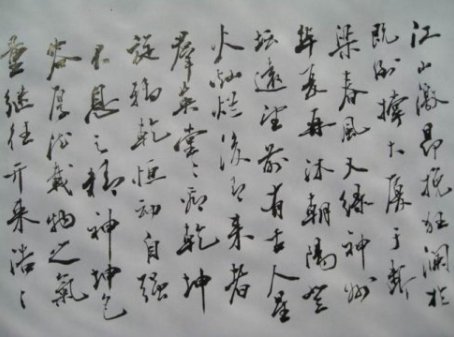 江山激昂挽狂澜於
既倒撑大厦于新
梁春风又绿神州
华夏再沐朝阳登
坛远望前有古人星
火灿烂后有来者
群英堂〻乾坤
旋转乾恒动自强
不息之精神坤包
容厚德载物之氣
量继往开来浩〻